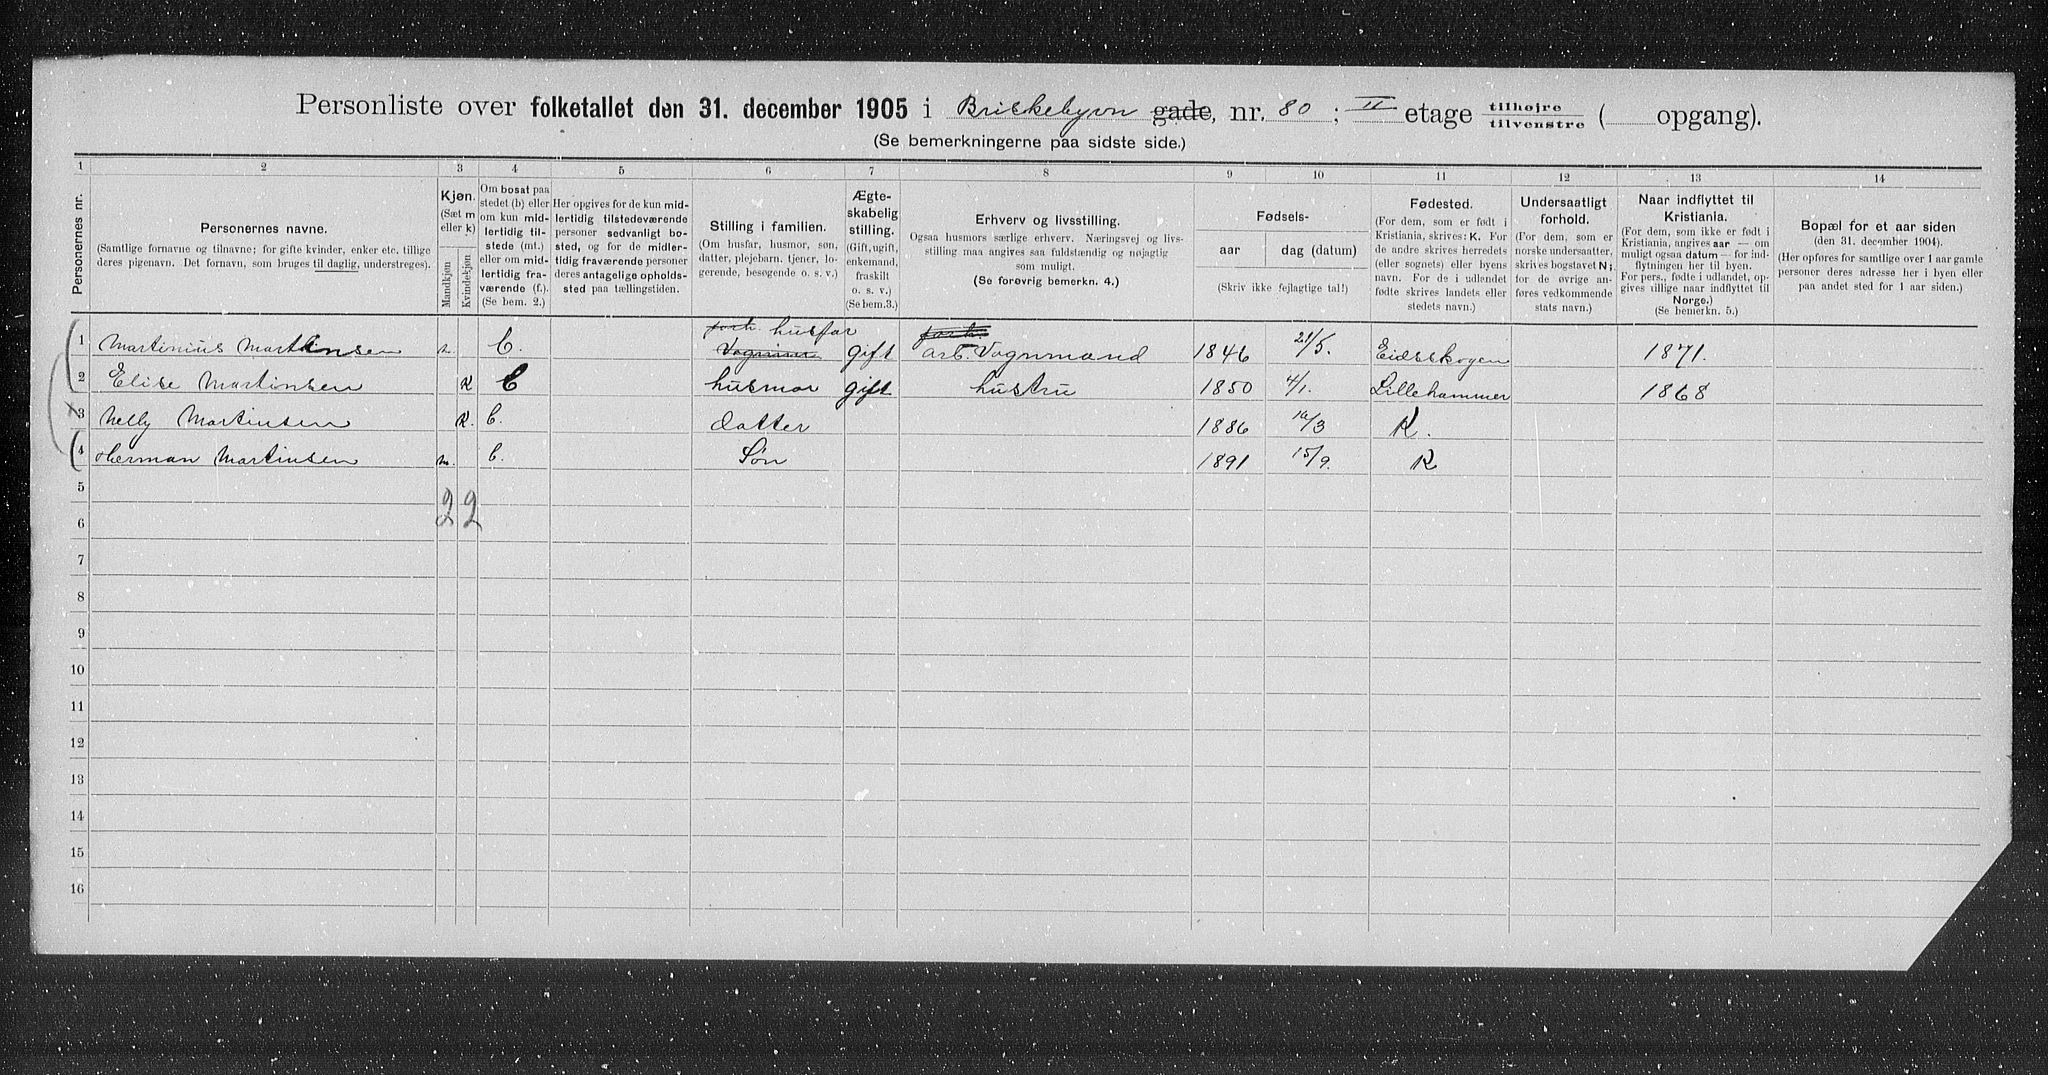 Personliste over folketallet den 31. december 1905 i Briskebyvn gade, nr. 80 ; II etage tilhøjre tilvenstre ( opgang).
(Se bemerkningerne paa sidste side.)
1 2 3 4 5 6 7 8 9 10 11 12 13 14
Personernes nr.
Personernes navne.
(Samtlige fornavne og tilnavne; for gifte kvinder, enker etc. tillige
deres pigenavn. Det fornavn, som bruges til daglig, understreges).
Kjøn.
(Sæt m
eller k)
Mandkjøn
Kvindekjøn
Om bosat paa
stedet (b) eller
om kun mid-
lertidig til-
stede (mt.)
eller om mid-
lertidig fra-
værende (f.).
(Se bem. 2.)
Her opgives for de kun mid-
lertidig tilstedeværende
personer sedvanligt bo-
sted, og for de midler-
tidig fraværende personer
deres antagelige opholds-
sted paa tællingstiden.
Stilling i familien.
(Om husfar, husmor, søn,
datter, plejebarn, tjener, lo-
gerende, besøgende o. s. v.)
Ægte-
skabelig
stilling.
(Gift, ugift,
enkemand,
fraskilt
o. s. v.)
(Se bem.3.)
Erhverv og livsstilling.
Ogsaa husmors særlige erhverv. Næringsvej og livs-
stilling maa angives saa fuldstændig og nøjagtig
som muligt.
(Se forøvrig bemerkn. 4.)
Fødsels-
aar dag (datum)
(Skriv ikke fejlagtige tal!)
Fødested.
(For dem, som er født i
Kristiania, skrives: K. For
de andre skrives herredets
(eller sognets) eller byens
navn. For de i udlendet
fødte skrives landets eller
stedets navn.)
Undersaatligt
forhold.
(For dem, som er
norske undersaatter,
skrives bogstavet N;
for de øvrige an-
føres vedkommende
stats navn.)
Naar indflyttet til
Kristiania.
(For dem, som ikke er født i
Kristiania, angives aar — om
muligt ogsaa datum — for ind-
flytningen her til byen.
For pers., fødte i udlandet, op-
gives tillige naar indflyttet til
Norge.)
(Se bemerkn. 5.)
Bopæl for et aar siden
(den 31. december 1904).
(Her opføres for samtlige over 1 aar gamle
personer deres adresse her i byen eller
paa andet sted for 1 aar siden.)
husfar
1 Martinius Martinsen m. b. gift arb. Vognmand 1846 21/5. Eidsskogen 1871.
2 Elise Martinsen K b husmor gift hustru 1850 4/1. Lillehammer 1868
3 Nelly Martinsen K. b. datter 1886 10/3 K.
4 Herman Martinsen m. b. Søn 1891 15/9. K
5
2 2
6
7
8
9
10
11
12
13
14
15
16